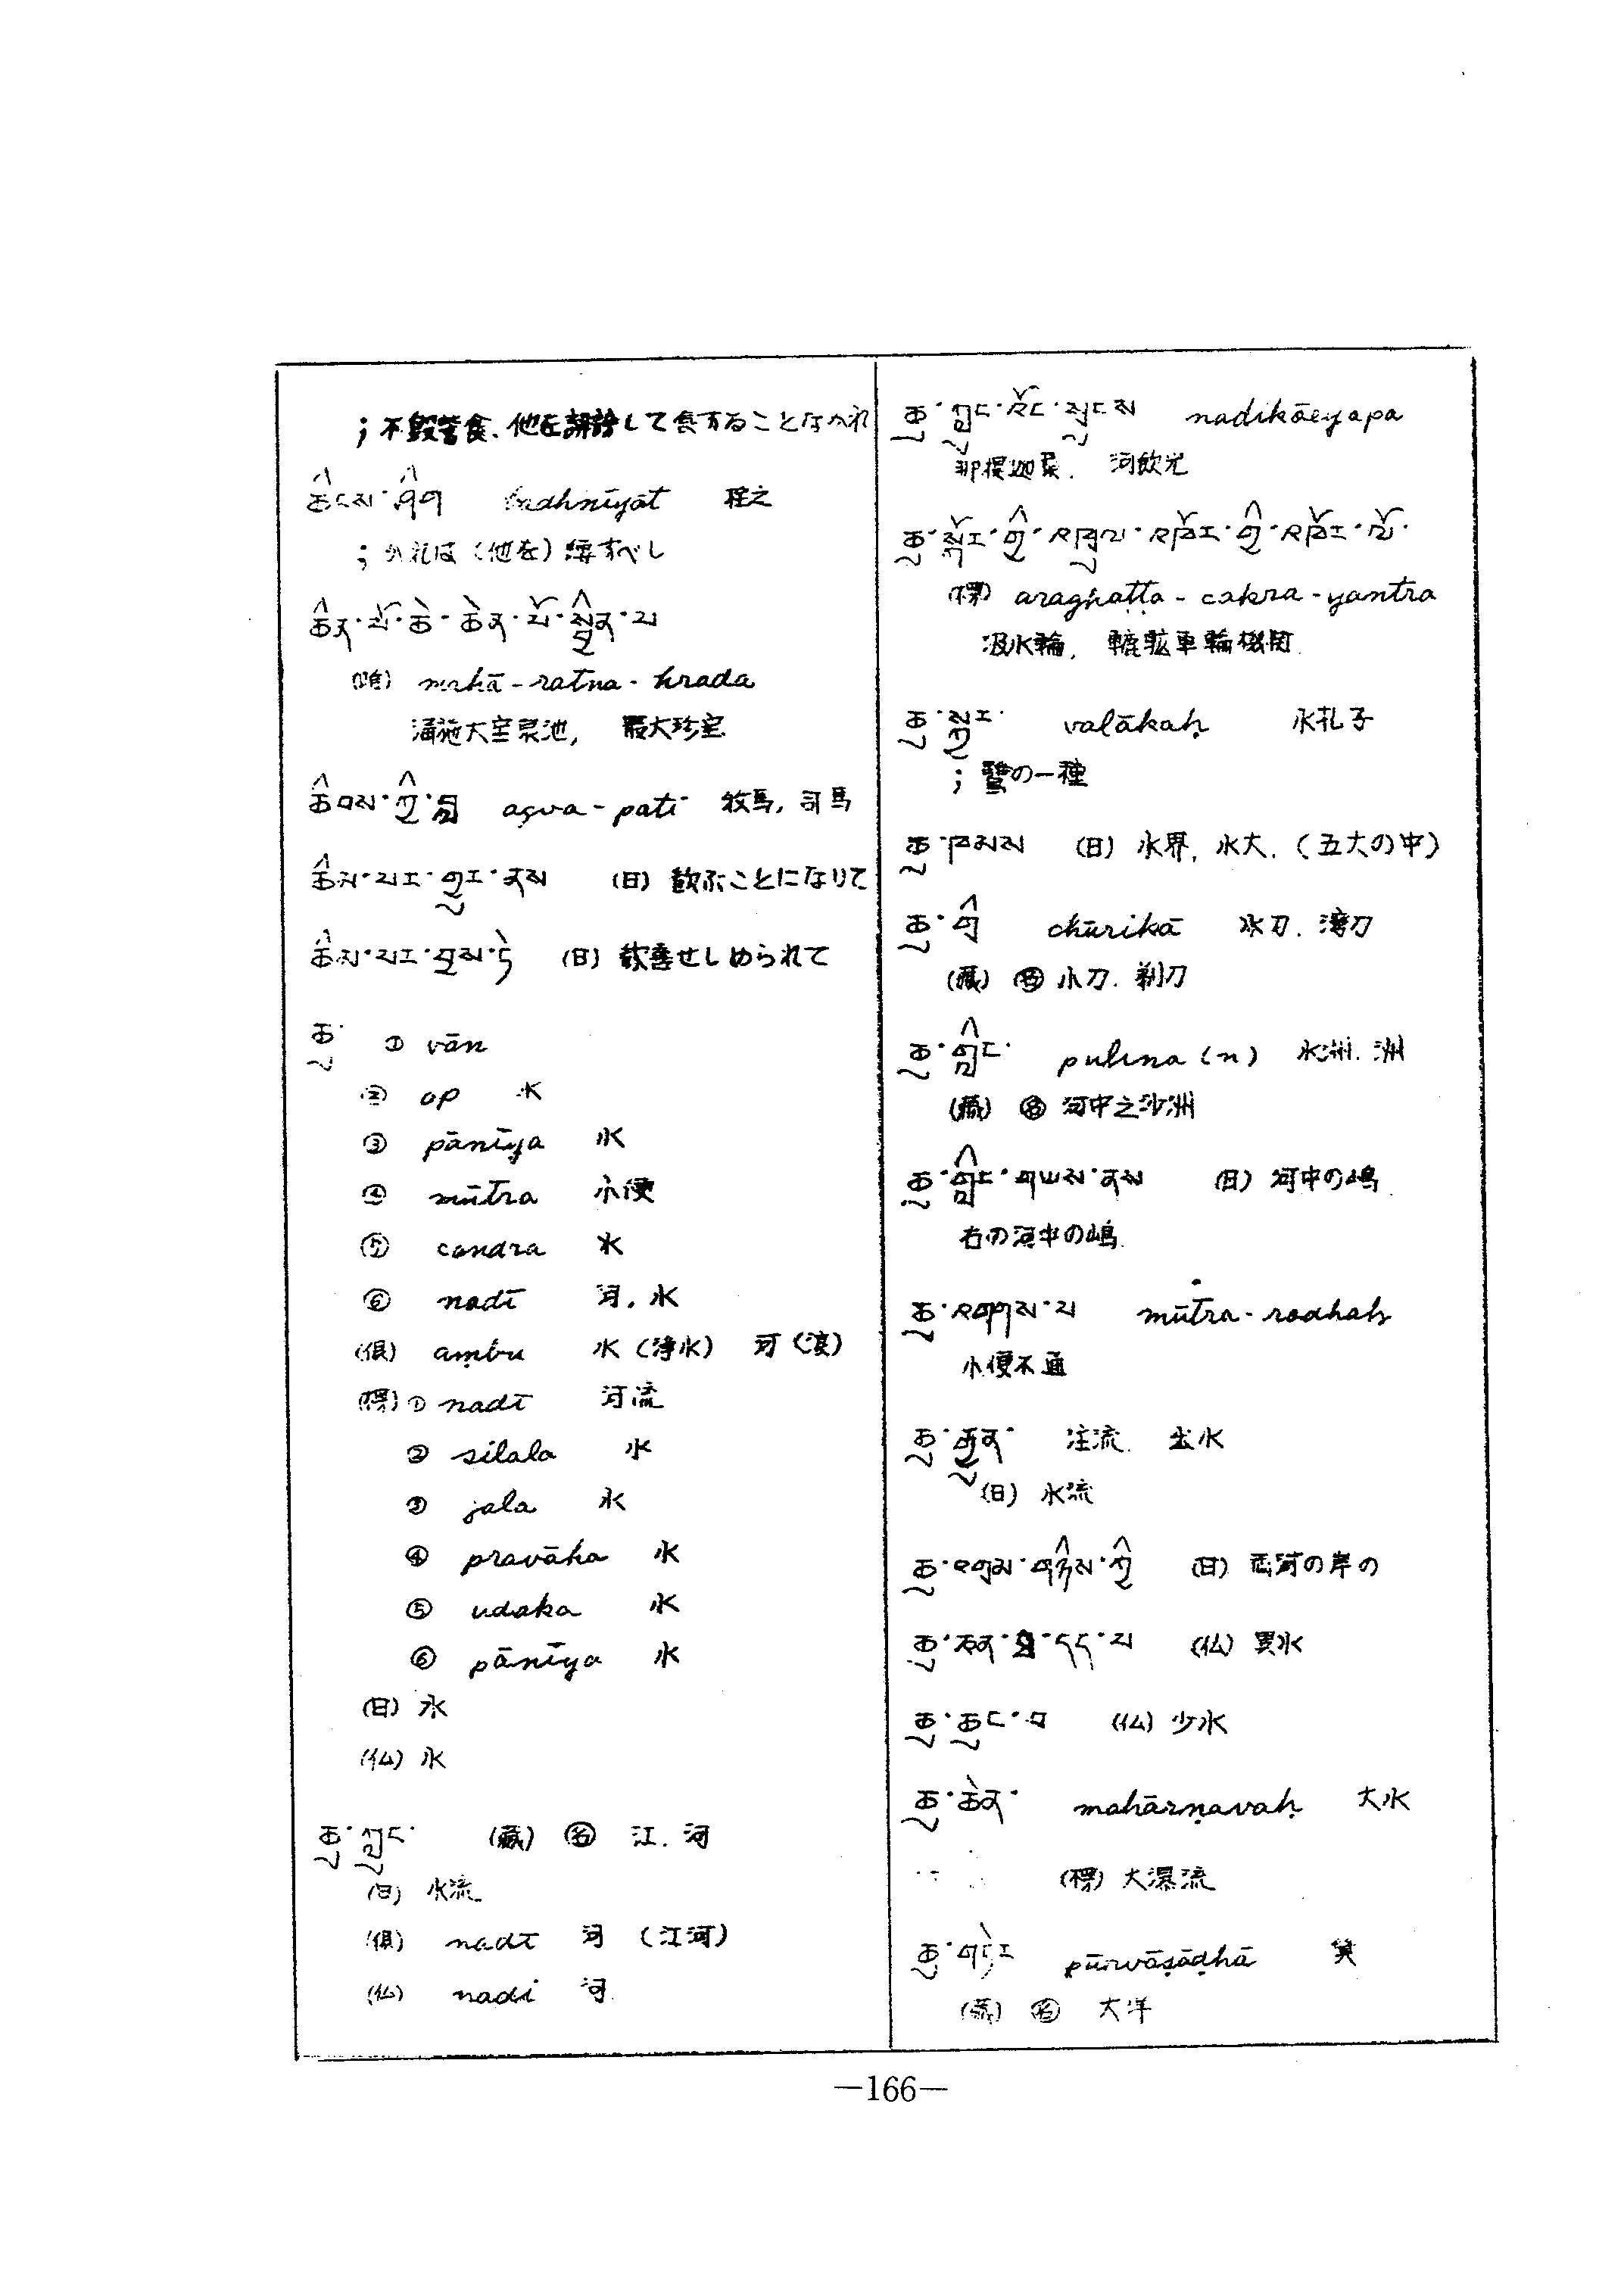 ；不毀呰食、他を誹謗して食することなかれ
ཆིངས་ཤིག badhnīyāt 拴之
；かれは（他を）縛すべし
ཆིན་པོ་ཆེ་ཆེན་པོ་སྦྱིན་པ
mahā-ratna-hrada
湧施大宝泉池, 最大珍宝
ཆིབས་ཀྱི་བླ açva-pati 牧馬, 司馬
ཆིམ་པར་གྱུར་ནས (日) 歓ぶことになりて
ཆིམ་པར་བྱས་ཏེ (日) 歓喜せしめられて
ཆུ་ ① vān
② ap 水
③ pānīya 水
④ mūtra 小便
⑤ candra 水
⑥ nadī 河, 水
(倶) aṃbu 水（浄水） 河（浪）
(標) ① nadī 河流
② silala 水
③ jala 水
④ pravāha 水
⑤ udaka 水
⑥ pānīya 水
(日) 水
(仏) 水
ཆུ་ཀླུང་ (蔵) 名 江. 河
(日) 水流
(倶) nadī 河 （江河）
(仏) nadi 河
ཆུ་ཀླུང་འོད་སྲུངས nadikāçyapa
那提迦葉. 河飲光
ཆུ་སྐོར་གྱི་འཁྲུལ་འཁོར་གྱི་འཁོར་ལོ་
(標) araghaṭṭa-cakra-yantra
汲水輪, 轆轤車輪機関
ཆུ་སྐྱར་ valākaḥ 水札子
；鷺の一種
ཆུ་ཁམས (日) 水界, 水大.（五大の中）
ཆུ་གྲི chūrikā 水刀. 薄刀
(蔵) 名 小刀. 剃刀
ཆུ་གླིང་ pulina (n) 水洲. 洲
(蔵) 名 河中之沙洲
ཆུ་གླིང་གཡས་ནས (日) 河中の嶋
右の河中の嶋
ཆུ་འགགས་པ mūtra-rodhaḥ
小便不通
ཆུ་རྒྱུན་ 注流. 出水
(日) 水流
ཆུ་འགྲམ་གཉིས་ཀྱི (日) 両河の岸の
(仏) 異水
ཆུ་ཆུང་བ (仏) 少水
ཆུ་ཆེན་ mahārṇavaḥ 大水
(標) 大瀑流
ཆུ་གཏེར pūrvāṣāḍhā 箕
(蔵) 名 大洋
—166—